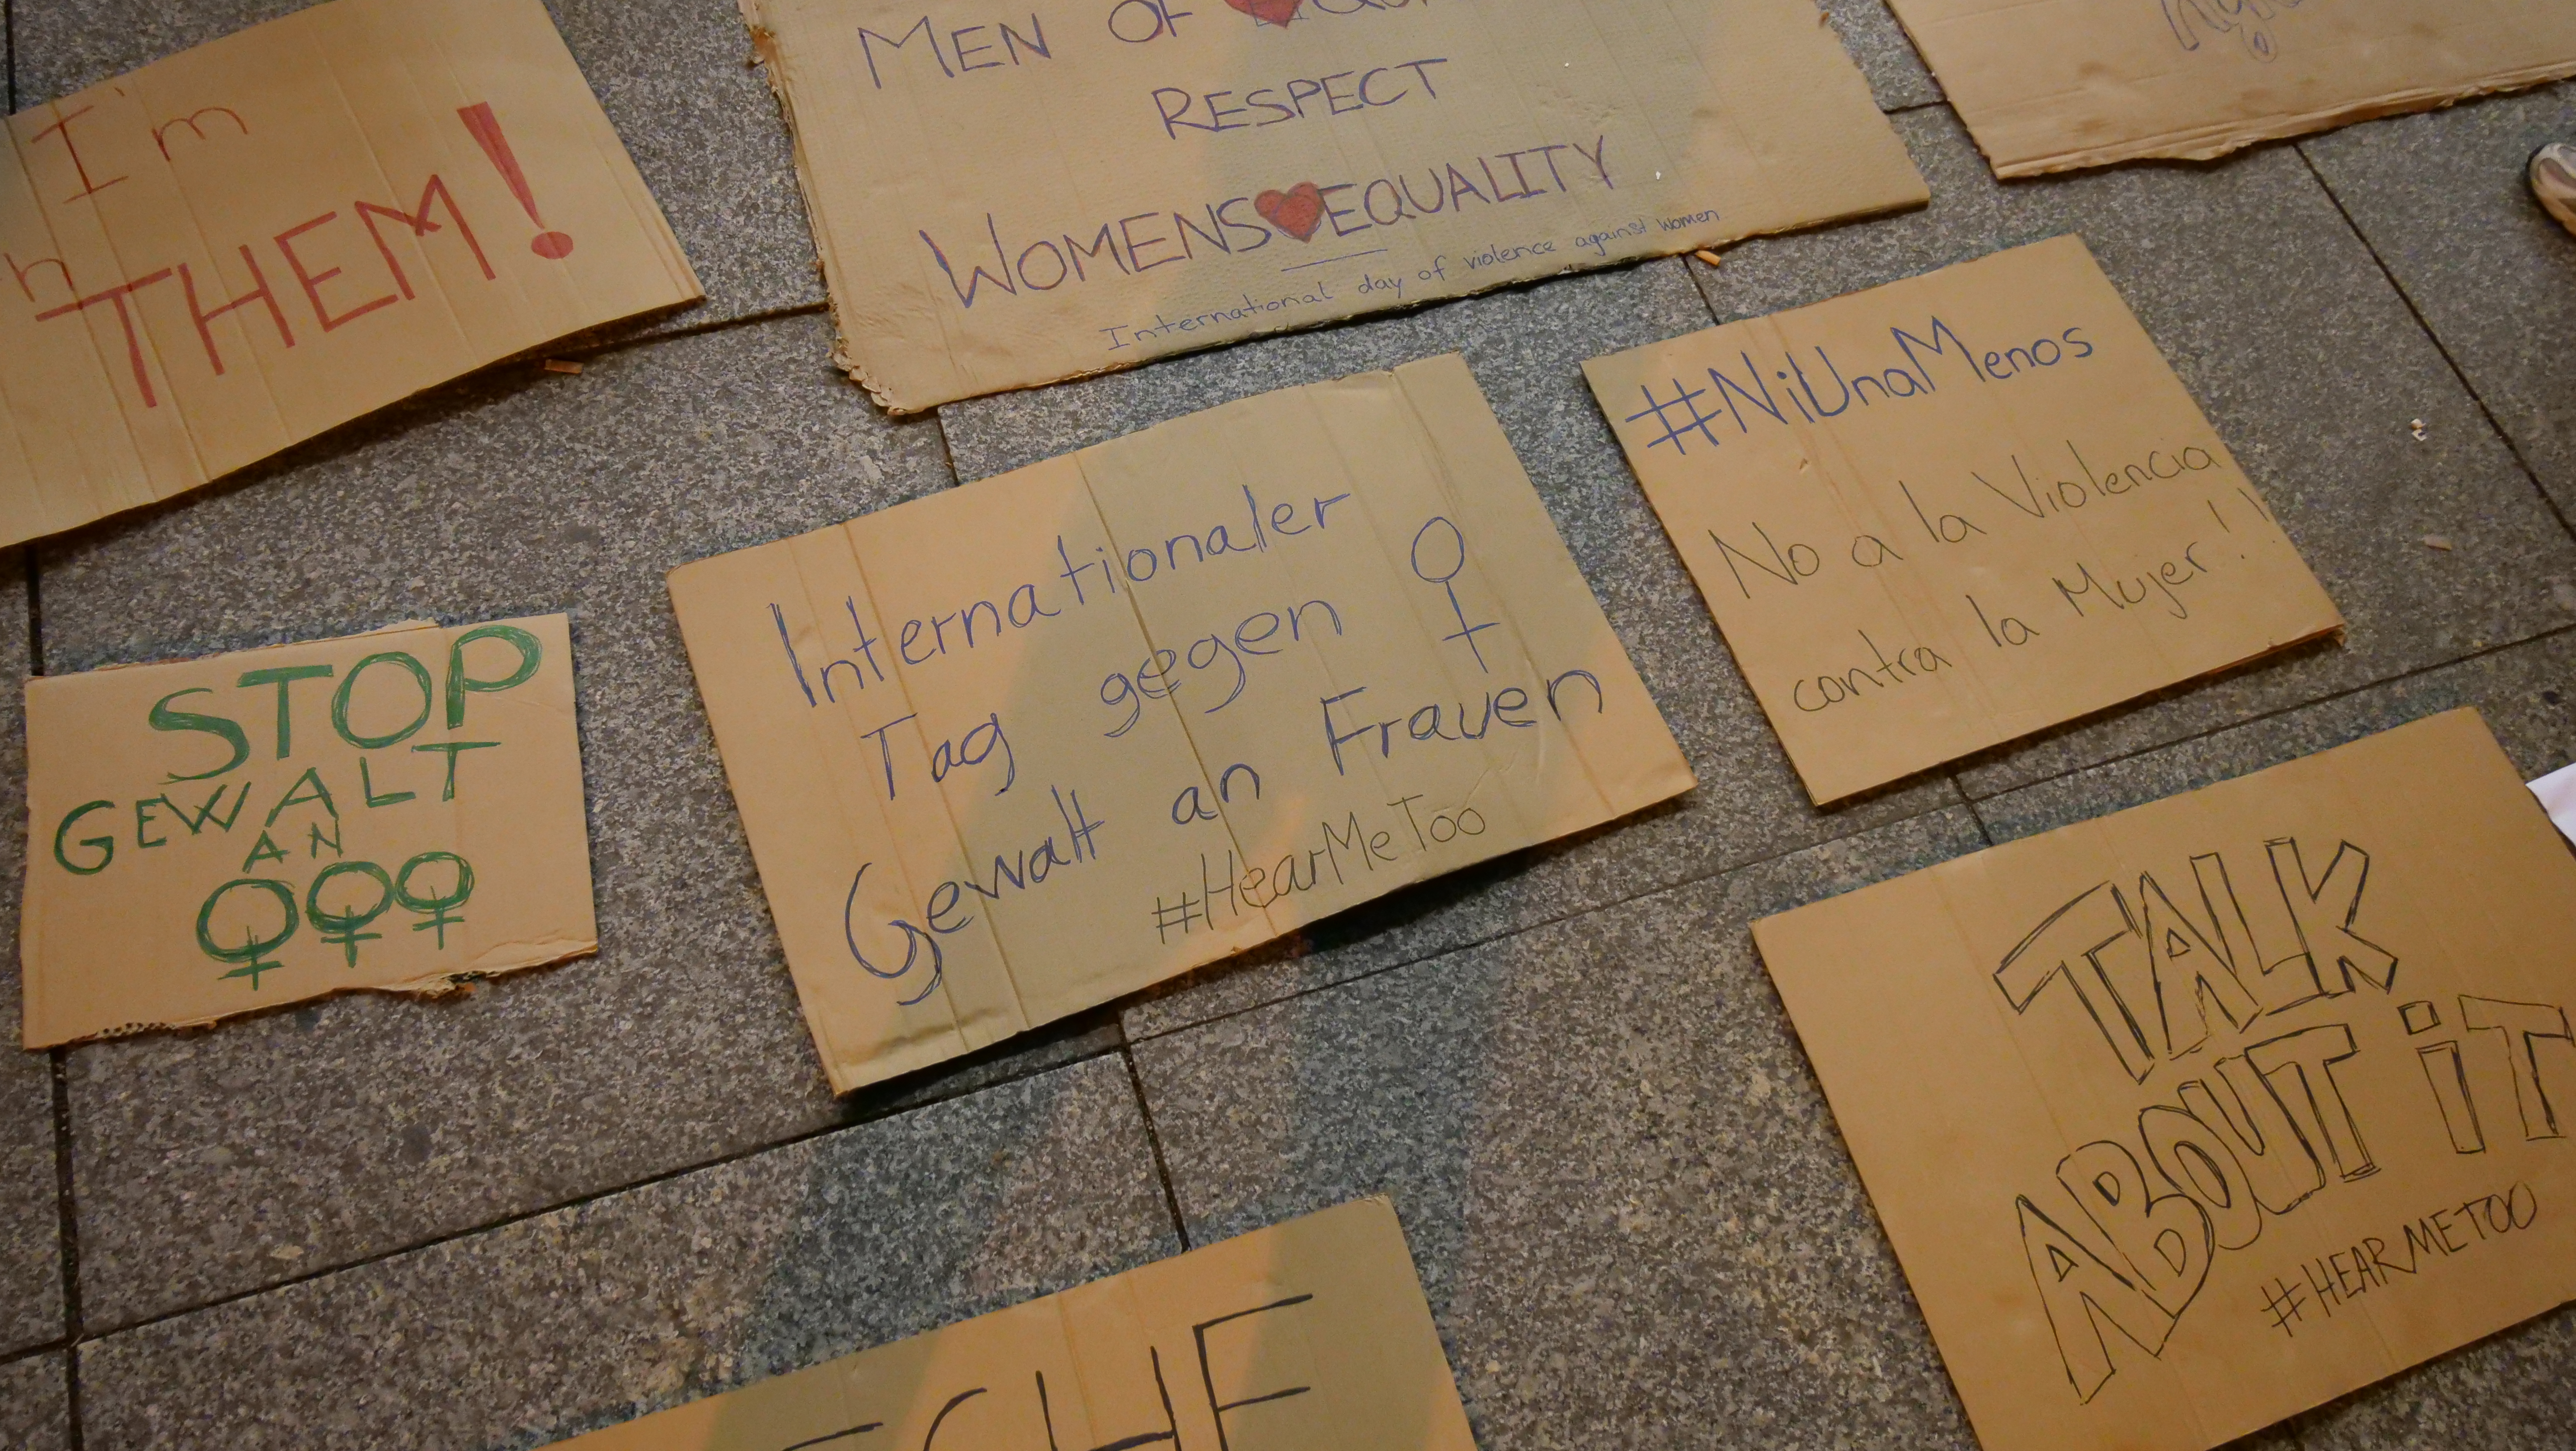 I'm
THEM!
MEN OF
RESPECT
WOMENS♥EQUALITY
International day of violence against women
#NiUnaMenos
No a la Violencia
contra la Mujer!!
STOP
GEWALT
AN
♀♀♀
Internationaler
Tag gegen ♀
Gewalt an Frauen
#HearMeToo
TALK
ABOUT iT
#HEARMETOO